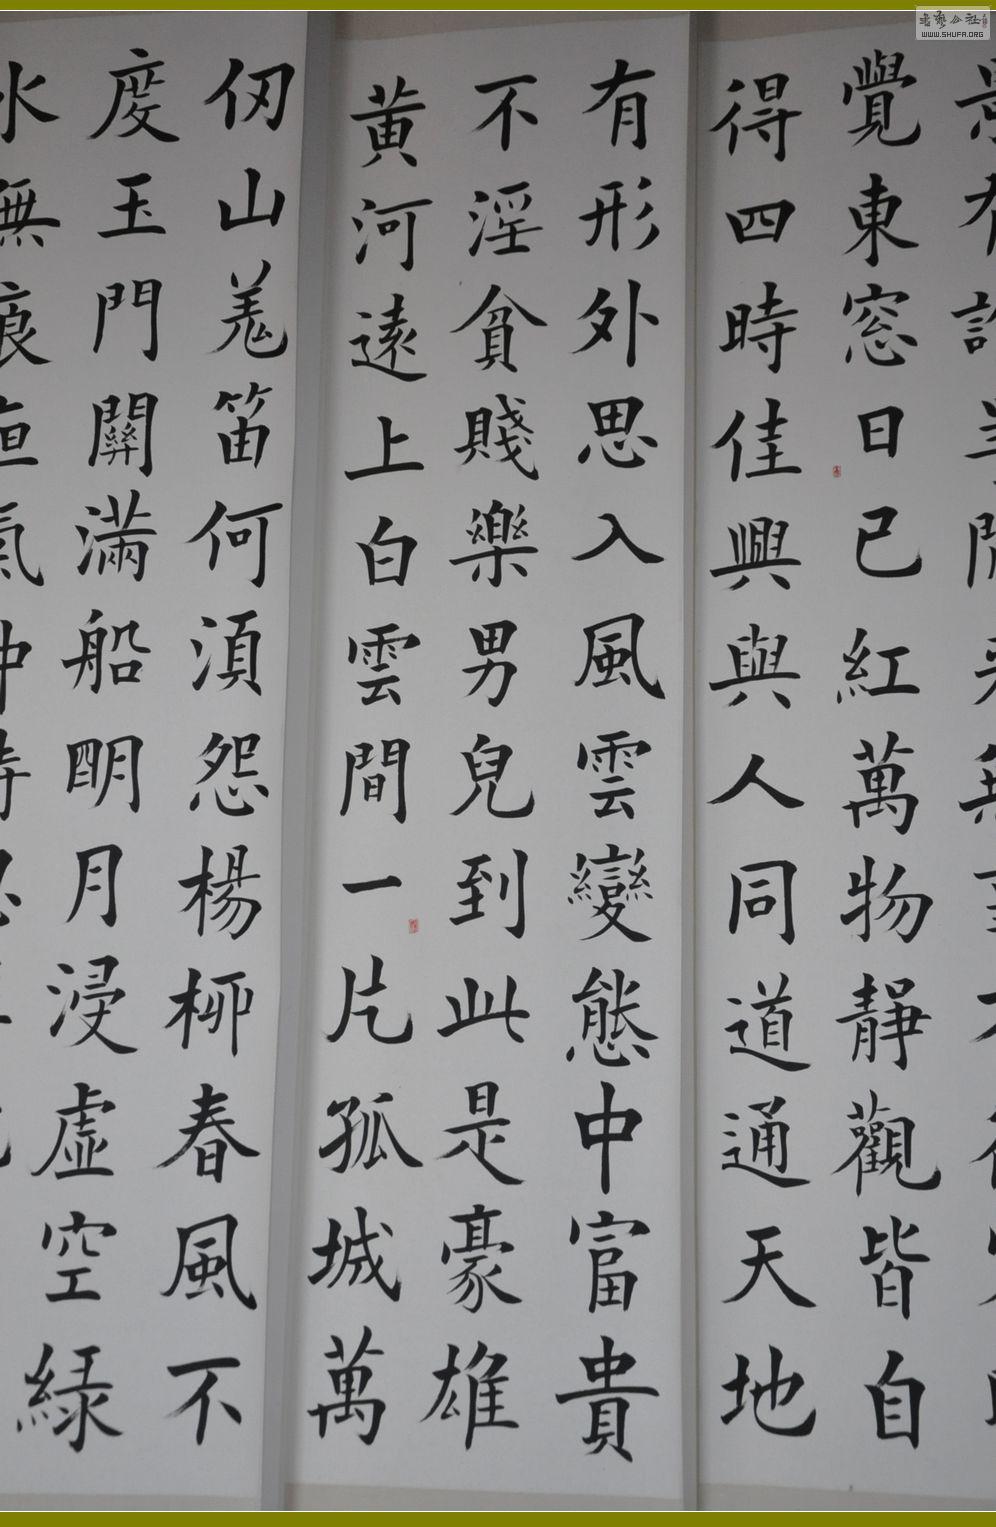 書藝公社
WWW.SHUFA.ORG
覺東窓日已紅萬物靜觀皆自
得四時佳興與人同道通天地
有形外思入風雲變態中富貴
不淫貧賤樂男兒到此是豪雄
黄河遠上白雲間一片孤城萬
仞山羌笛何須怨楊柳春風不
度玉門關滿船眀月浸虛空緑
水無痕